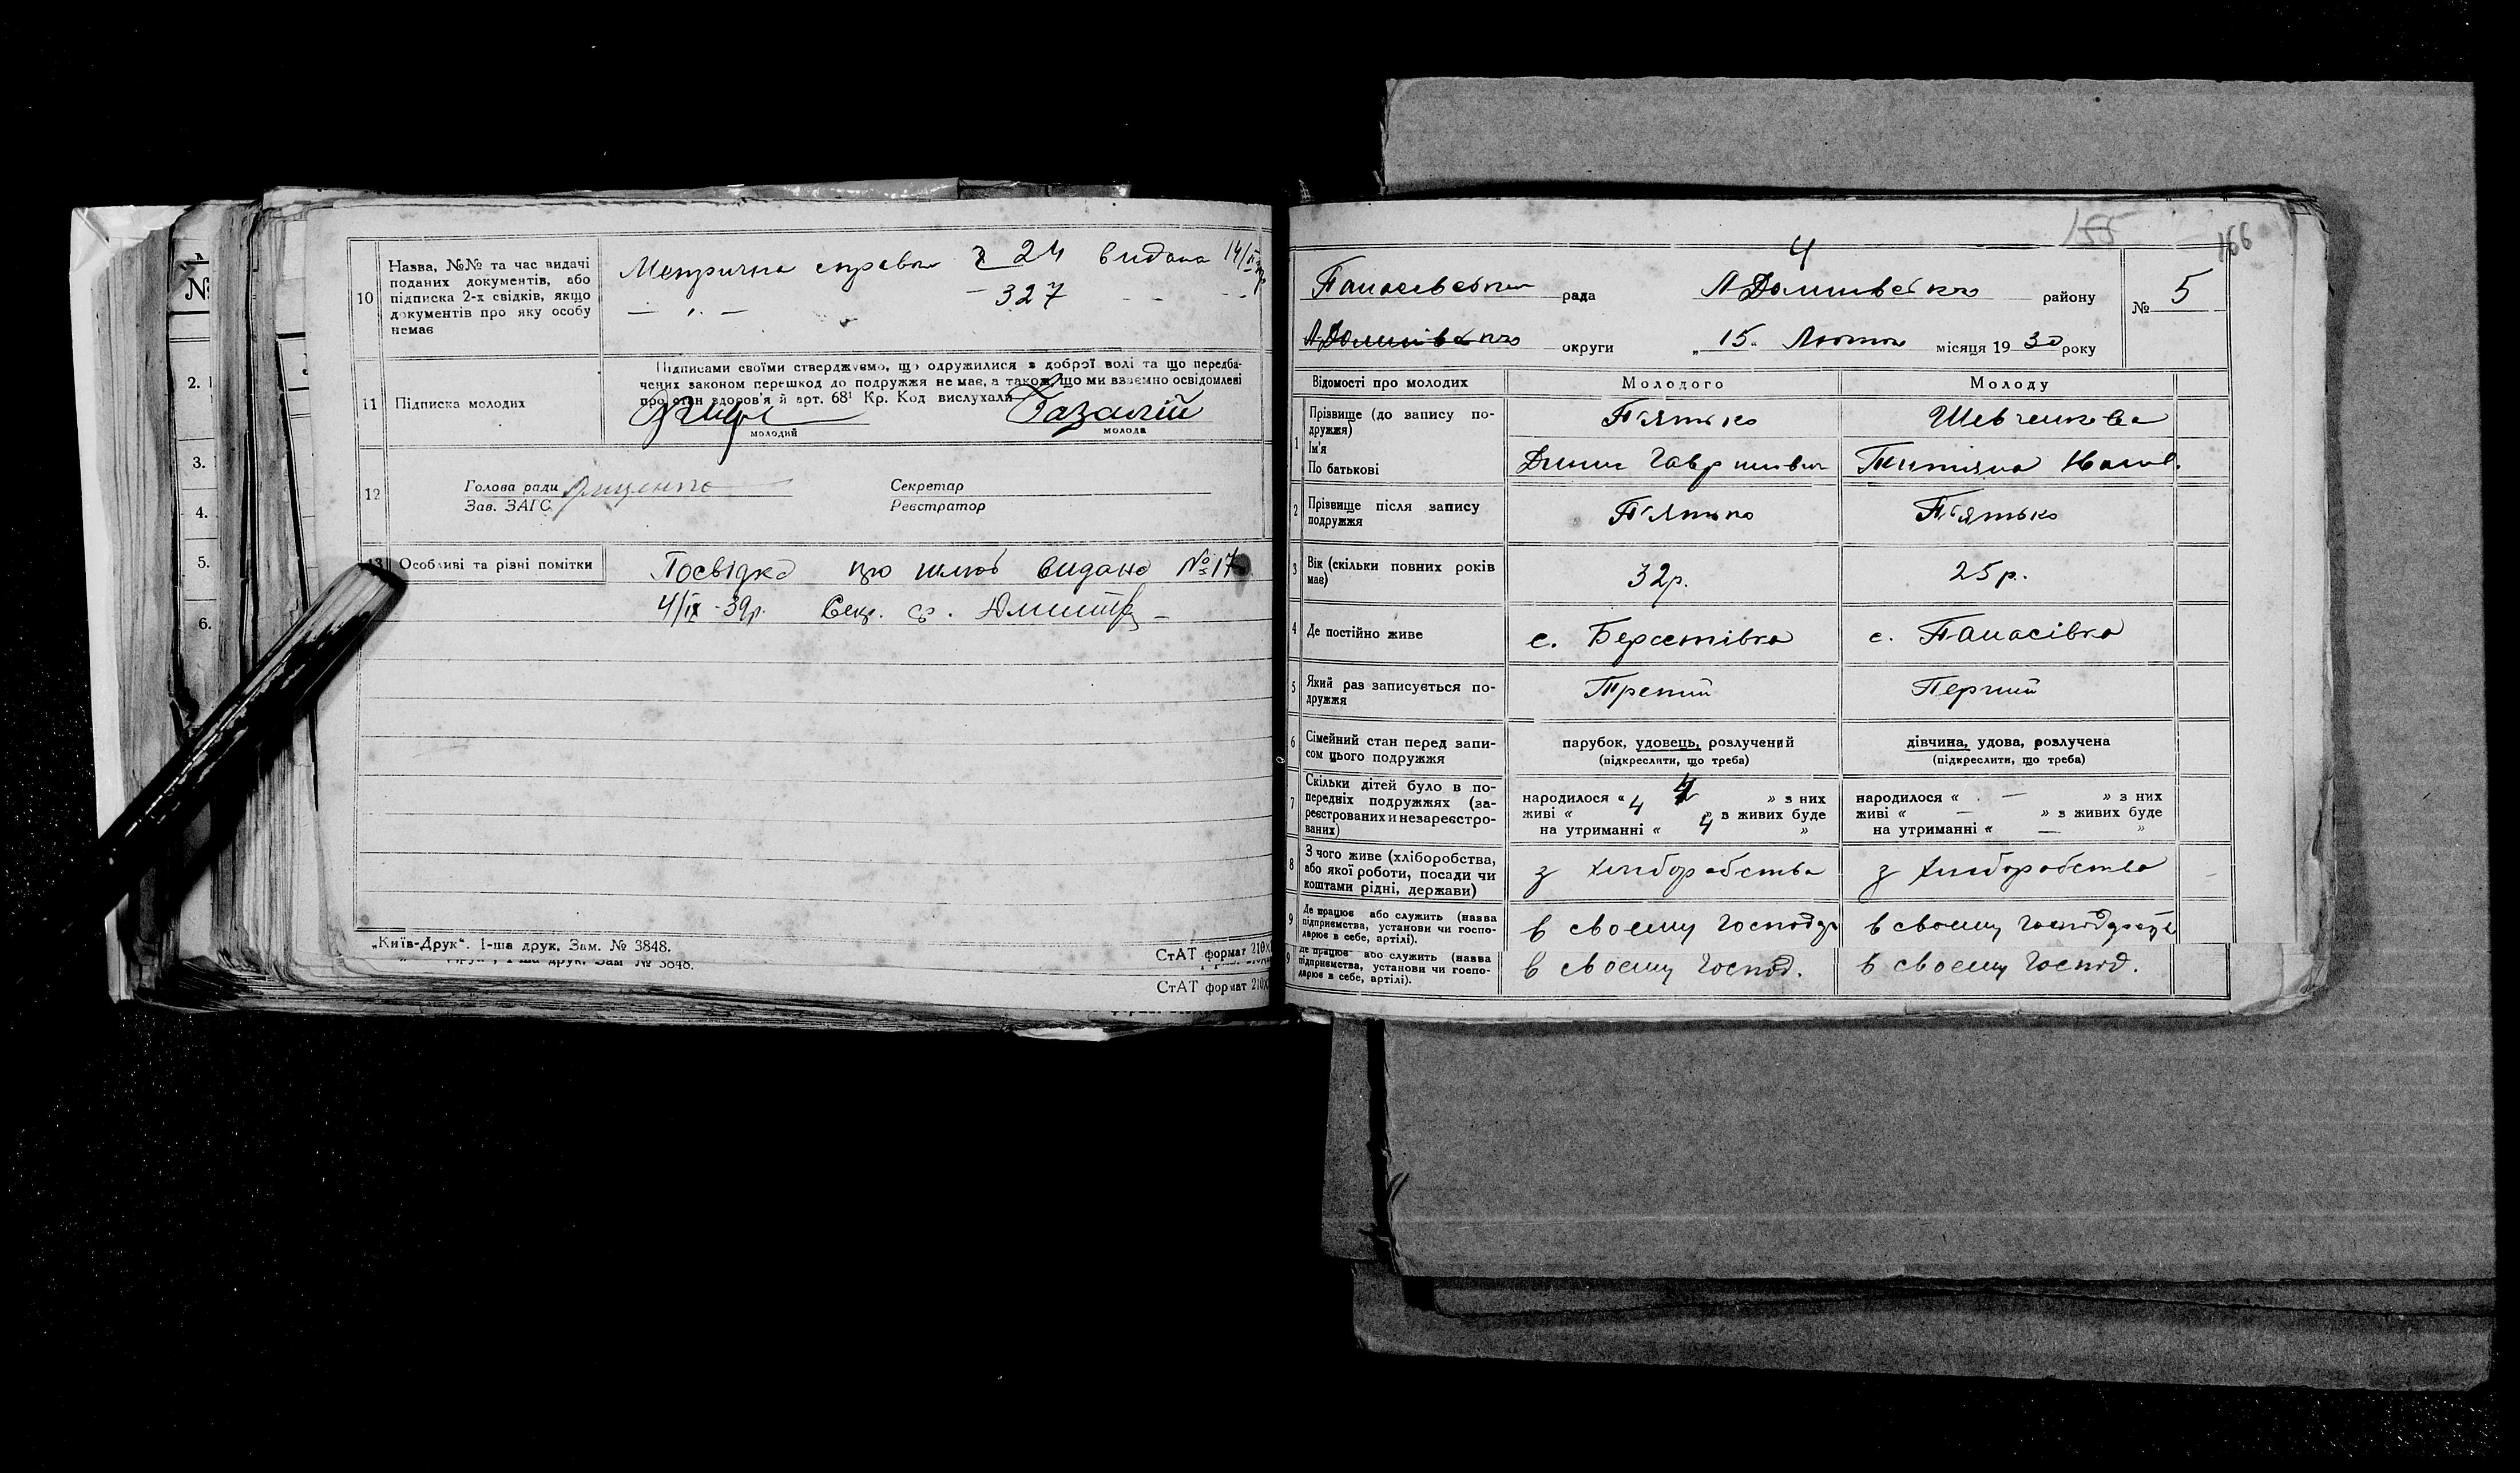 №
2.
3.
4.
5.
6.
10
Назва, №№ та час видачі
поданих документів, або
підписка 2-х свідків, якщо
документів про яку особу
немає
Метрична справка 24 видана 14/II
327
11
Підписка молодих
Підписами своїми стверджуємо, що одружилися з доброї волі та що передба-
чених законом перешкод до подружжя не має, а також, що ми взаємно освідомлені
про стан здоров'я й арт. 68¹ Кр. Код вислухали
молодий
Базалій
молода
12
Голова ради
Зав. ЗАГС
Секретар
Реєстратор
13
Особливі та різні помітки
Посвідка про шлюб видана №17
4/IX-39р. Секр.
„Київ-Друк“. 1-ша друк. Зам. № 3848.
СтАТ формат 210х
1-ша друк. Зам № 3848.
СтАТ формат 210х
155
166
4
Панасівська рада
району
№ 5
округи
„15“ Лютого місяця 1930 року
Відомості про молодих
Молодого
Молоду
1
Прізвище (до запису по-
дружжя)
Ім'я
По батькові
П'ятько
Шевченкова
2
Прізвище після запису
подружжя
П'ятько
П'ятько
3
Вік (скільки повних років
має)
32р.
25р.
4
Де постійно живе
с. Берестівка
с. Панасівка
5
Який раз записується по-
дружжя
Третій
Перший
6
Сімейний стан перед запи-
сом цього подружжя
парубок, удовець, розлучений
(підкреслити, що треба)
дівчина, удова, розлучена
(підкреслити, що треба)
7
Скільки дітей було в по-
передніх подружжях (за-
реєстрованих и незареєстро-
ваних)
народилося « 4 » з них
живі « 4 » з живих буде
на утриманні « 4 »
народилося « — » з них
живі « — » з живих буде
на утриманні « — »
8
З чого живе (хліборобства,
або якої роботи, посади чи
коштами рідні, держави)
з хліборобства
з хліборобства
9
Де працює або служить (назва
підприємства, установи чи госпо-
дарює в себе, артілі).
в своєму господар
в своєму господарстві
9
Де працює або служить (назва
підприємства, установи чи госпо-
дарює в себе, артілі).
в своєму господ.
в своєму господ.